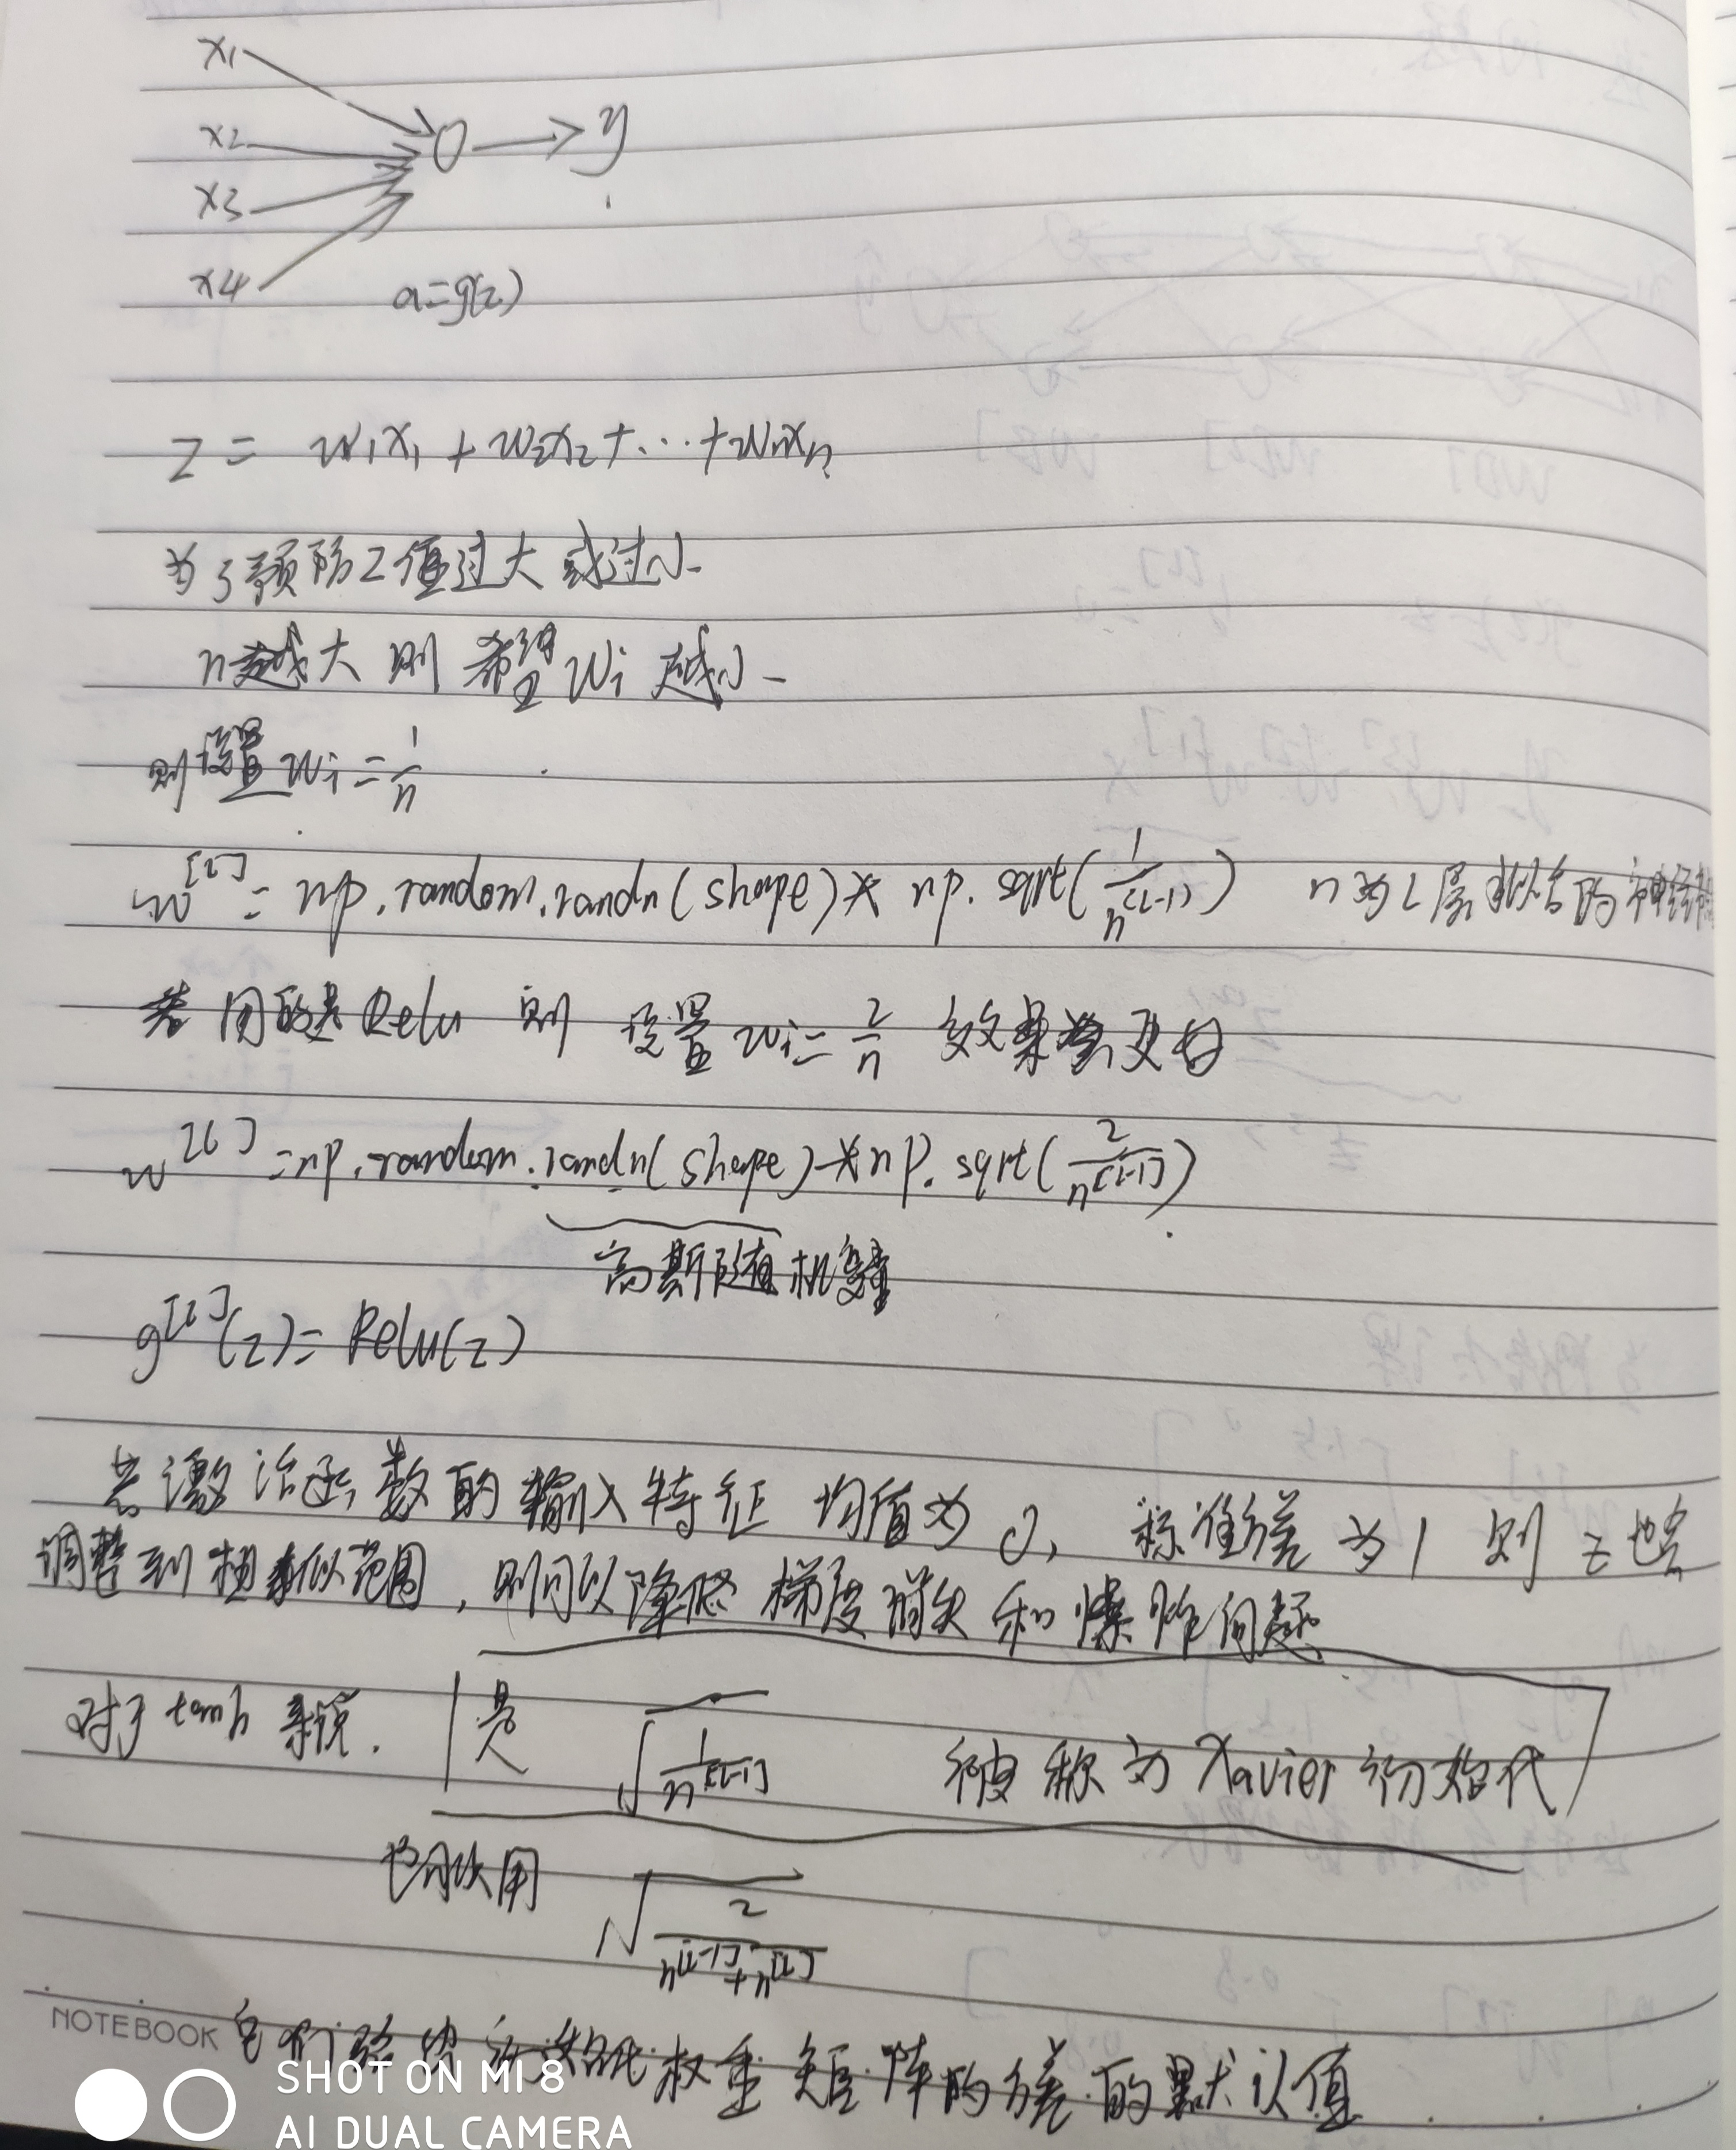 x1
x2
x3
x4
y
a=g(z)
z = w₁x₁ + w₂x₂ + … + wₙxₙ
为了预防z值过大或过小
n越大 则 希望 wᵢ 越小
则设置 wᵢ = 1/n
w^[l] = np.random.randn(shape) * np.sqrt(1/n^(l-1)) n为l层的神经
若用的是Relu 则 设置 wᵢ = 2/n 效果会更好
w^[l] = np.random.randn(shape) * np.sqrt(2/n^[l-1])
高斯随机变量
g^[l](z) = Relu(z)
若激活函数的输入特征 均值为0, 标准差为1 则 z也会
调整到相似范围, 则可以降低梯度消失和爆炸问题
对于tanh来说. 是 √(1/n^[l-1]) 被称为Xavier初始化
也可以用 √(2/(n^[l-1]+n^[l]))
NOTEBOOK 它们给出初始化权重矩阵的方差的默认值
SHOT ON MI 8
AI DUAL CAMERA